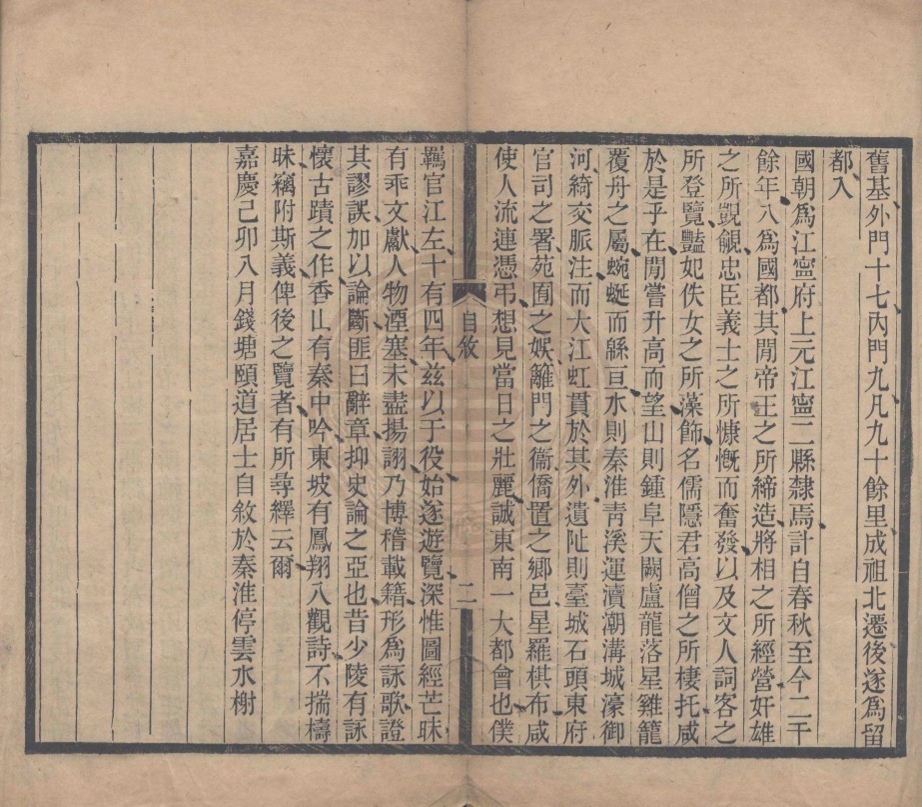 舊基外門十七內門九凡九十餘里成祖北遷後遂爲留
都入
國朝爲江寧府上元江寧二縣隸焉計自春秋至今二千
餘年八爲國都其閒帝王之所締造將相之所經營奸雄
之所覬覦忠臣義士之所慷慨而奮發以及文人詞客之
所登覽豔妃佚女之所藻飾名儒隱君高僧之所棲托咸
於是乎在閒嘗升高而望山則鍾阜天闕盧龍落星雞籠
覆舟之屬蜿蜒而緜亘水則秦淮靑溪運瀆潮溝城濠御
河綺交脈注而大江虹貫於其外遺阯則臺城石頭東府
官司之署苑囿之娛籬門之衞僑置之鄉邑星羅棋布咸
使人流連憑弔想見當日之壯麗誠東南一大都會也僕
自敘
二
羈官江左十有四年茲以于役始遂遊覽深惟圖經芒昧
有乖文獻人物湮塞未盡揚詡乃博稽載籍形爲詠歌證
其謬誤加以論斷匪曰辭章抑史論之亞也昔少陵有詠
懷古蹟之作香山有秦中吟東坡有鳳翔八觀詩不揣檮
昧竊附斯義俾後之覽者有所尋繹云爾
嘉慶己卯八月錢塘頤道居士自敘於秦淮停雲水榭